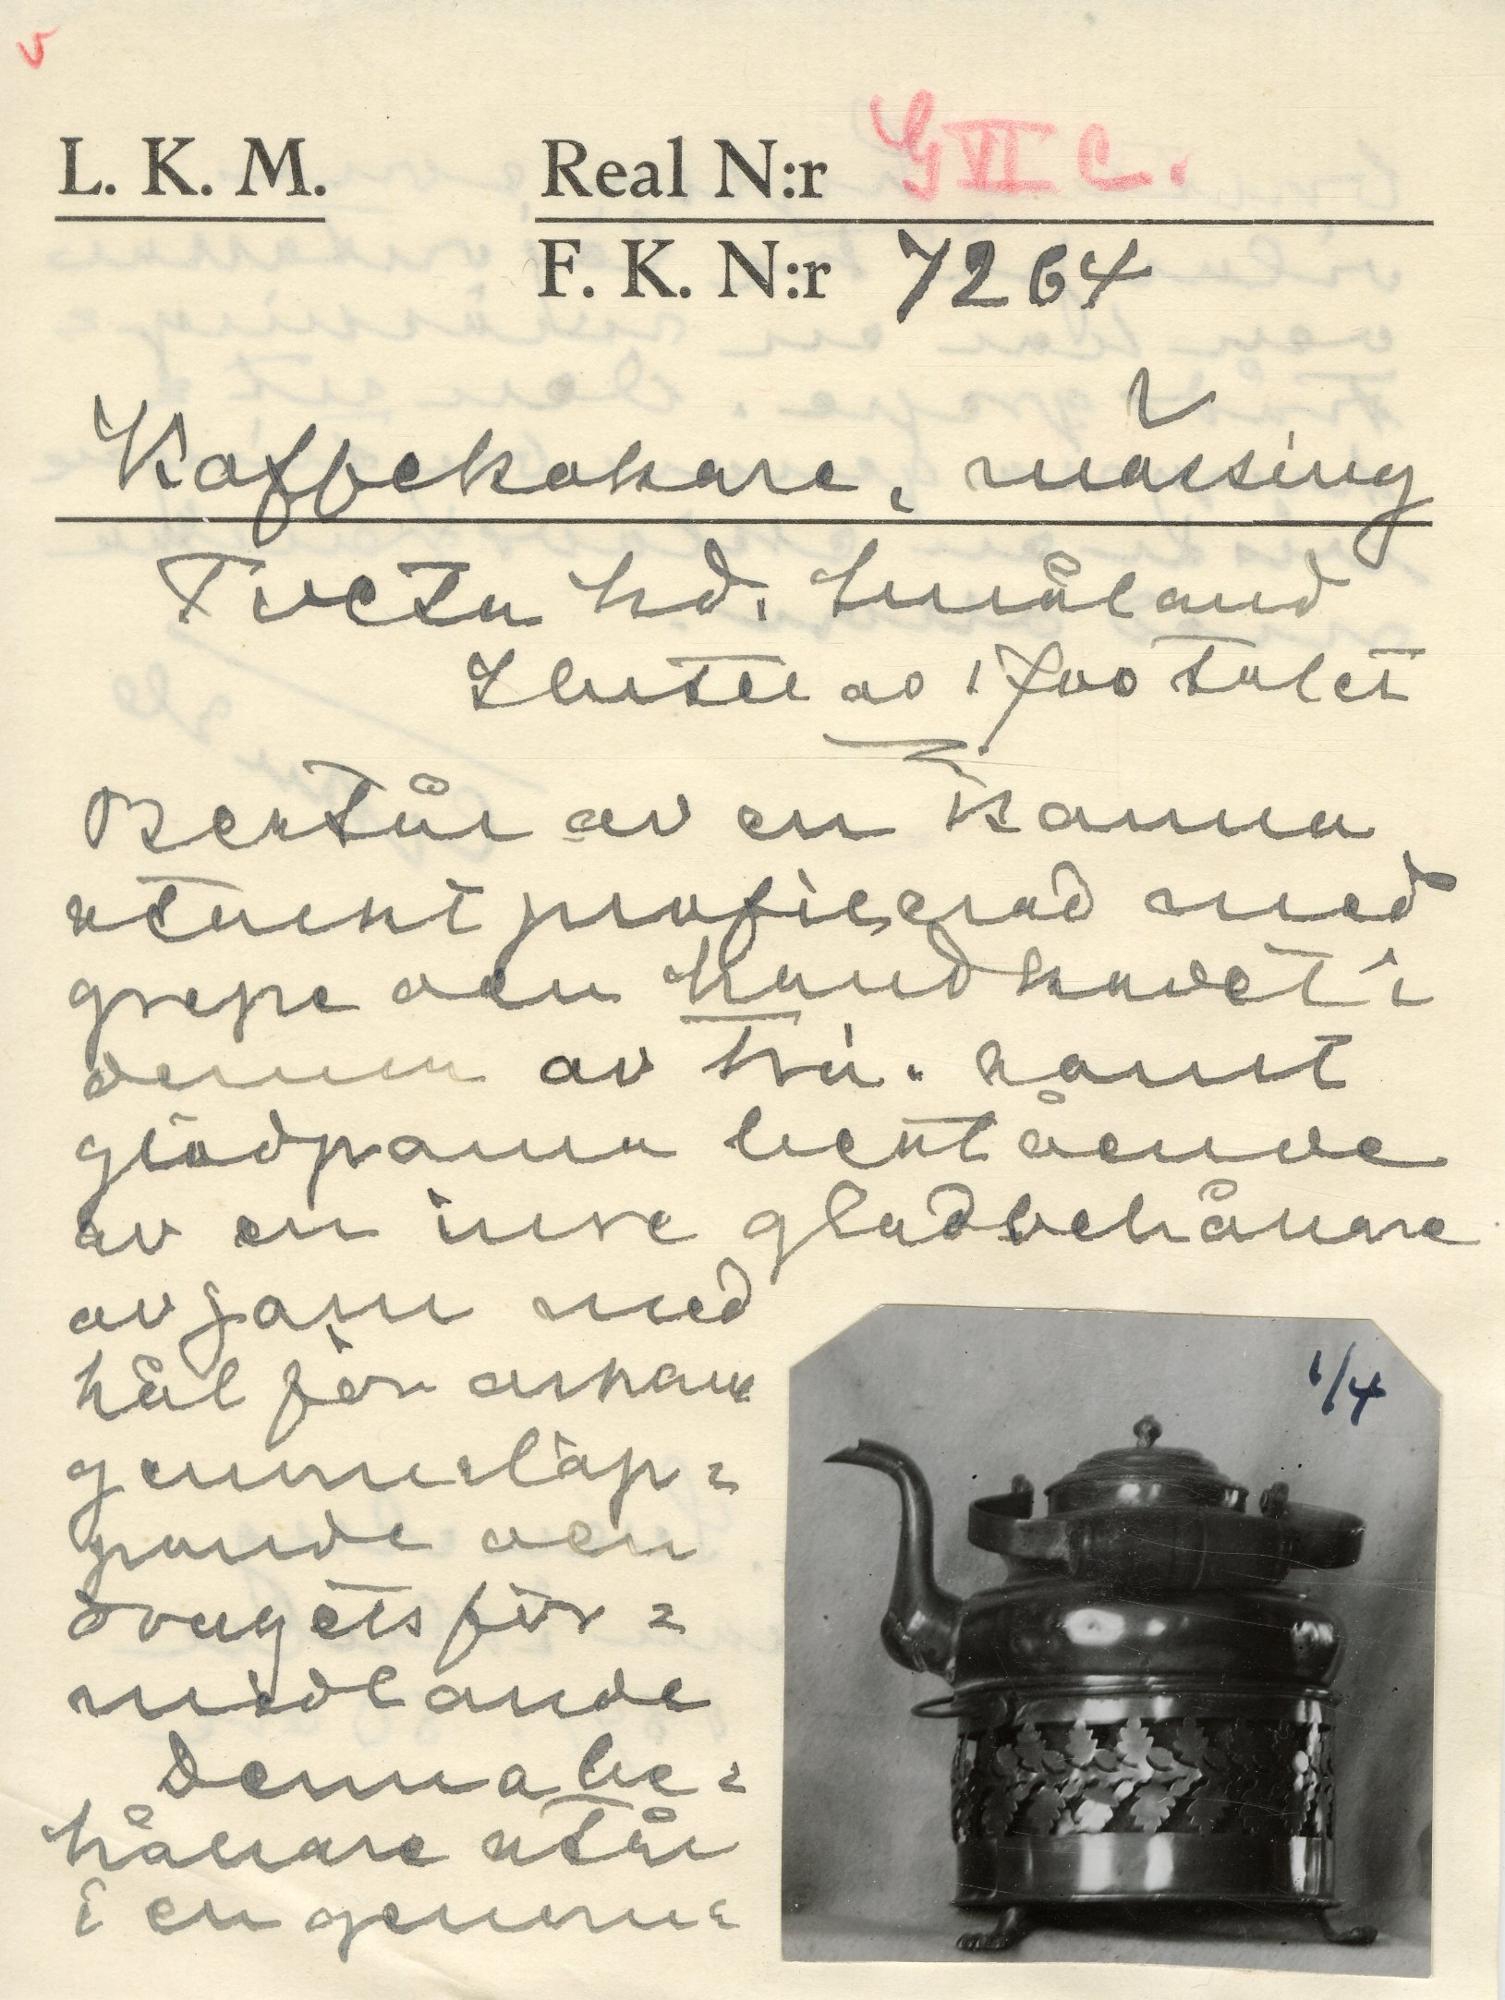 v
L. K. M.
Real N:r G VI C.
F. K. N:r 7264
Kaffekokare, mässing
Tveta hd. Småland
Slutet av 1700 talet
Består av en kanna
starkt profilerad med
grepe och handtaget i
denna av trä. samt
glödpanna bestående
av en inre glödbehållare
av järn med
hål för askans
genomsläp-
pande och
dragets för-
medlande
Denna be-
hållare står
i en genom-
1/4